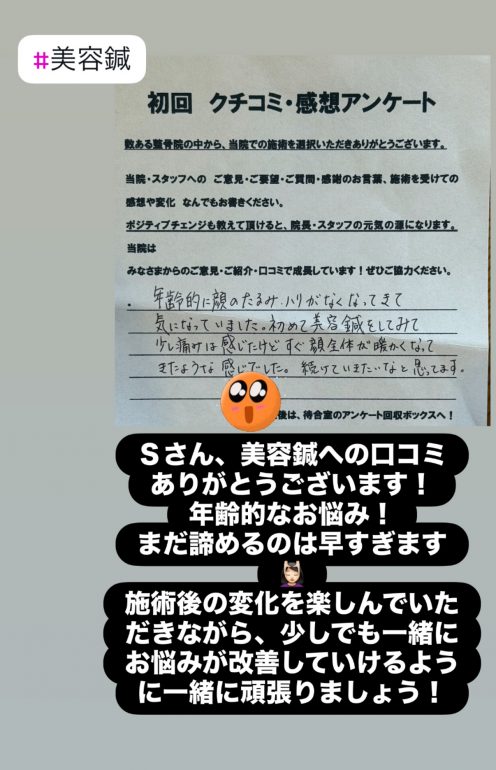 #美容鍼
初回 クチコミ・感想アンケート
数ある整骨院の中から、当院での施術を選択いただきありがとうございます。
当院・スタッフへの ご意見・ご要望・ご質問・感謝のお言葉、施術を受けての
感想や変化 なんでもお書きください。
ポジティブチェンジも教えて頂けると、院長・スタッフの元気の源になります。
当院は
みなさまからのご意見・ご紹介・口コミで成長しています！ぜひご協力ください。
・ 年齢的に顔のたるみ、ハリがなくなってきて
気になっていました。初めて美容鍼をしてみて
少し痛みは感じたけどすぐ顔全体が暖かくなって
きたような感じでした。続けていきたいなと思ってます。
後は、待合室のアンケート回収ボックスへ！
Sさん、美容鍼への口コミ
ありがとうございます！
年齢的なお悩み！
まだ諦めるのは早すぎます
施術後の変化を楽しんでいた
だきながら、少しでも一緒に
お悩みが改善していけるよう
に一緒に頑張りましょう！